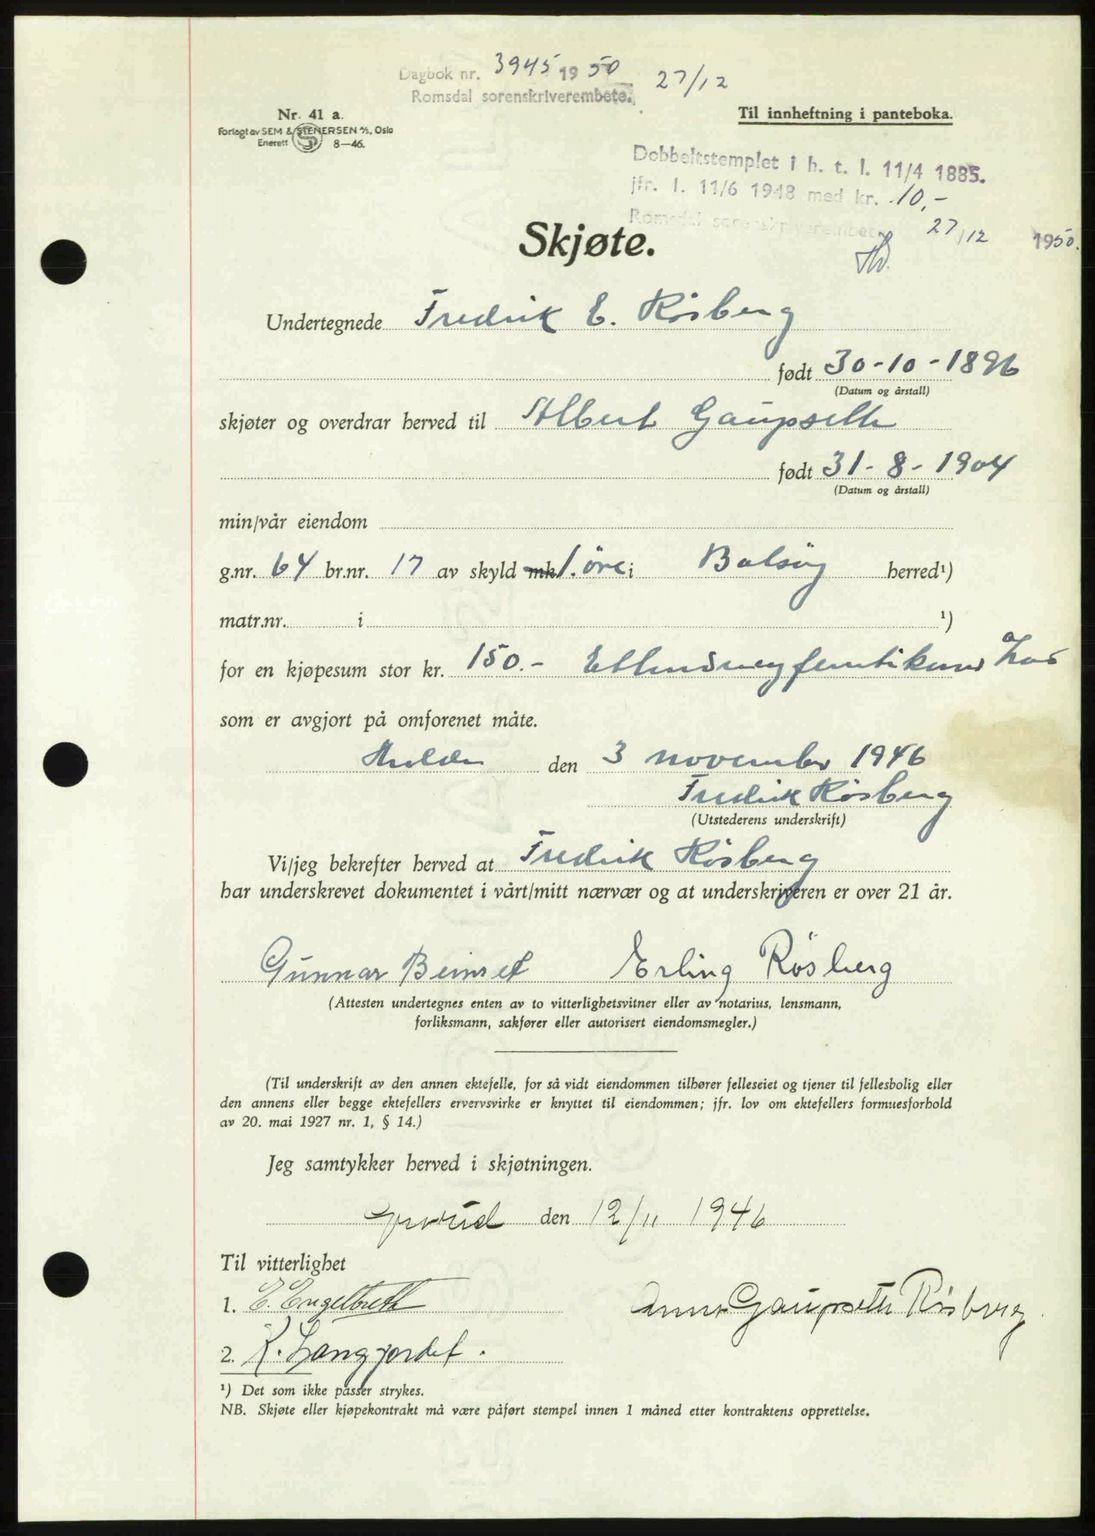 Dagbok nr. 3945 1950 27/12
Romsdal sorenskriverembete.
Nr. 41 a.
Forlagt av SEM & STENERSEN A/S, Oslo
Enerett 8-46.
Til innheftning i panteboka.
Dobbeltstemplet i h. t. l. 11/4 1885.
jfr. l. 11/6 1948 med kr. 10,-
Romsdal sorenskriverembete 27/12 1950.
Skjøte.
Undertegnede Fredrik E. Røsberg
født 30-10-1896
(Datum og årstall)
skjøter og overdrar herved til Albert Gaupseth
født 31-8-1904
(Datum og årstall)
min/vår eiendom
g.nr. 64 br.nr. 17 av skyld mk 1. øre i Bolsøy herred¹)
matr.nr. i ¹)
for en kjøpesum stor kr. 150.-
som er avgjort på omforenet måte.
den 3 november 1946
Fredrik Røsberg
(Utstederens underskrift)
Vi/jeg bekrefter herved at Fredrik Røsberg
har underskrevet dokumentet i vårt/mitt nærvær og at underskriveren er over 21 år.
Gunnar Beinset Erling Røsberg
(Attesten undertegnes enten av to vitterlighetsvitner eller av notarius, lensmann,
forliksmann, sakfører eller autorisert eiendomsmegler.)
(Til underskrift av den annen ektefelle, for så vidt eiendommen tilhører felleseiet og tjener til fellesbolig eller
den annens eller begge ektefellers ervervsvirke er knyttet til eiendommen; jfr. lov om ektefellers formuesforhold
av 20. mai 1927 nr. 1, § 14.)
Jeg samtykker herved i skjøtningen.
den 12/11 1946
Til vitterlighet
1. E. Engelbreth Anna Gaupseth Røsberg.
2. K. Langjordet.
¹) Det som ikke passer strykes.
NB. Skjøte eller kjøpekontrakt må være påført stempel innen 1 måned etter kontraktens opprettelse.